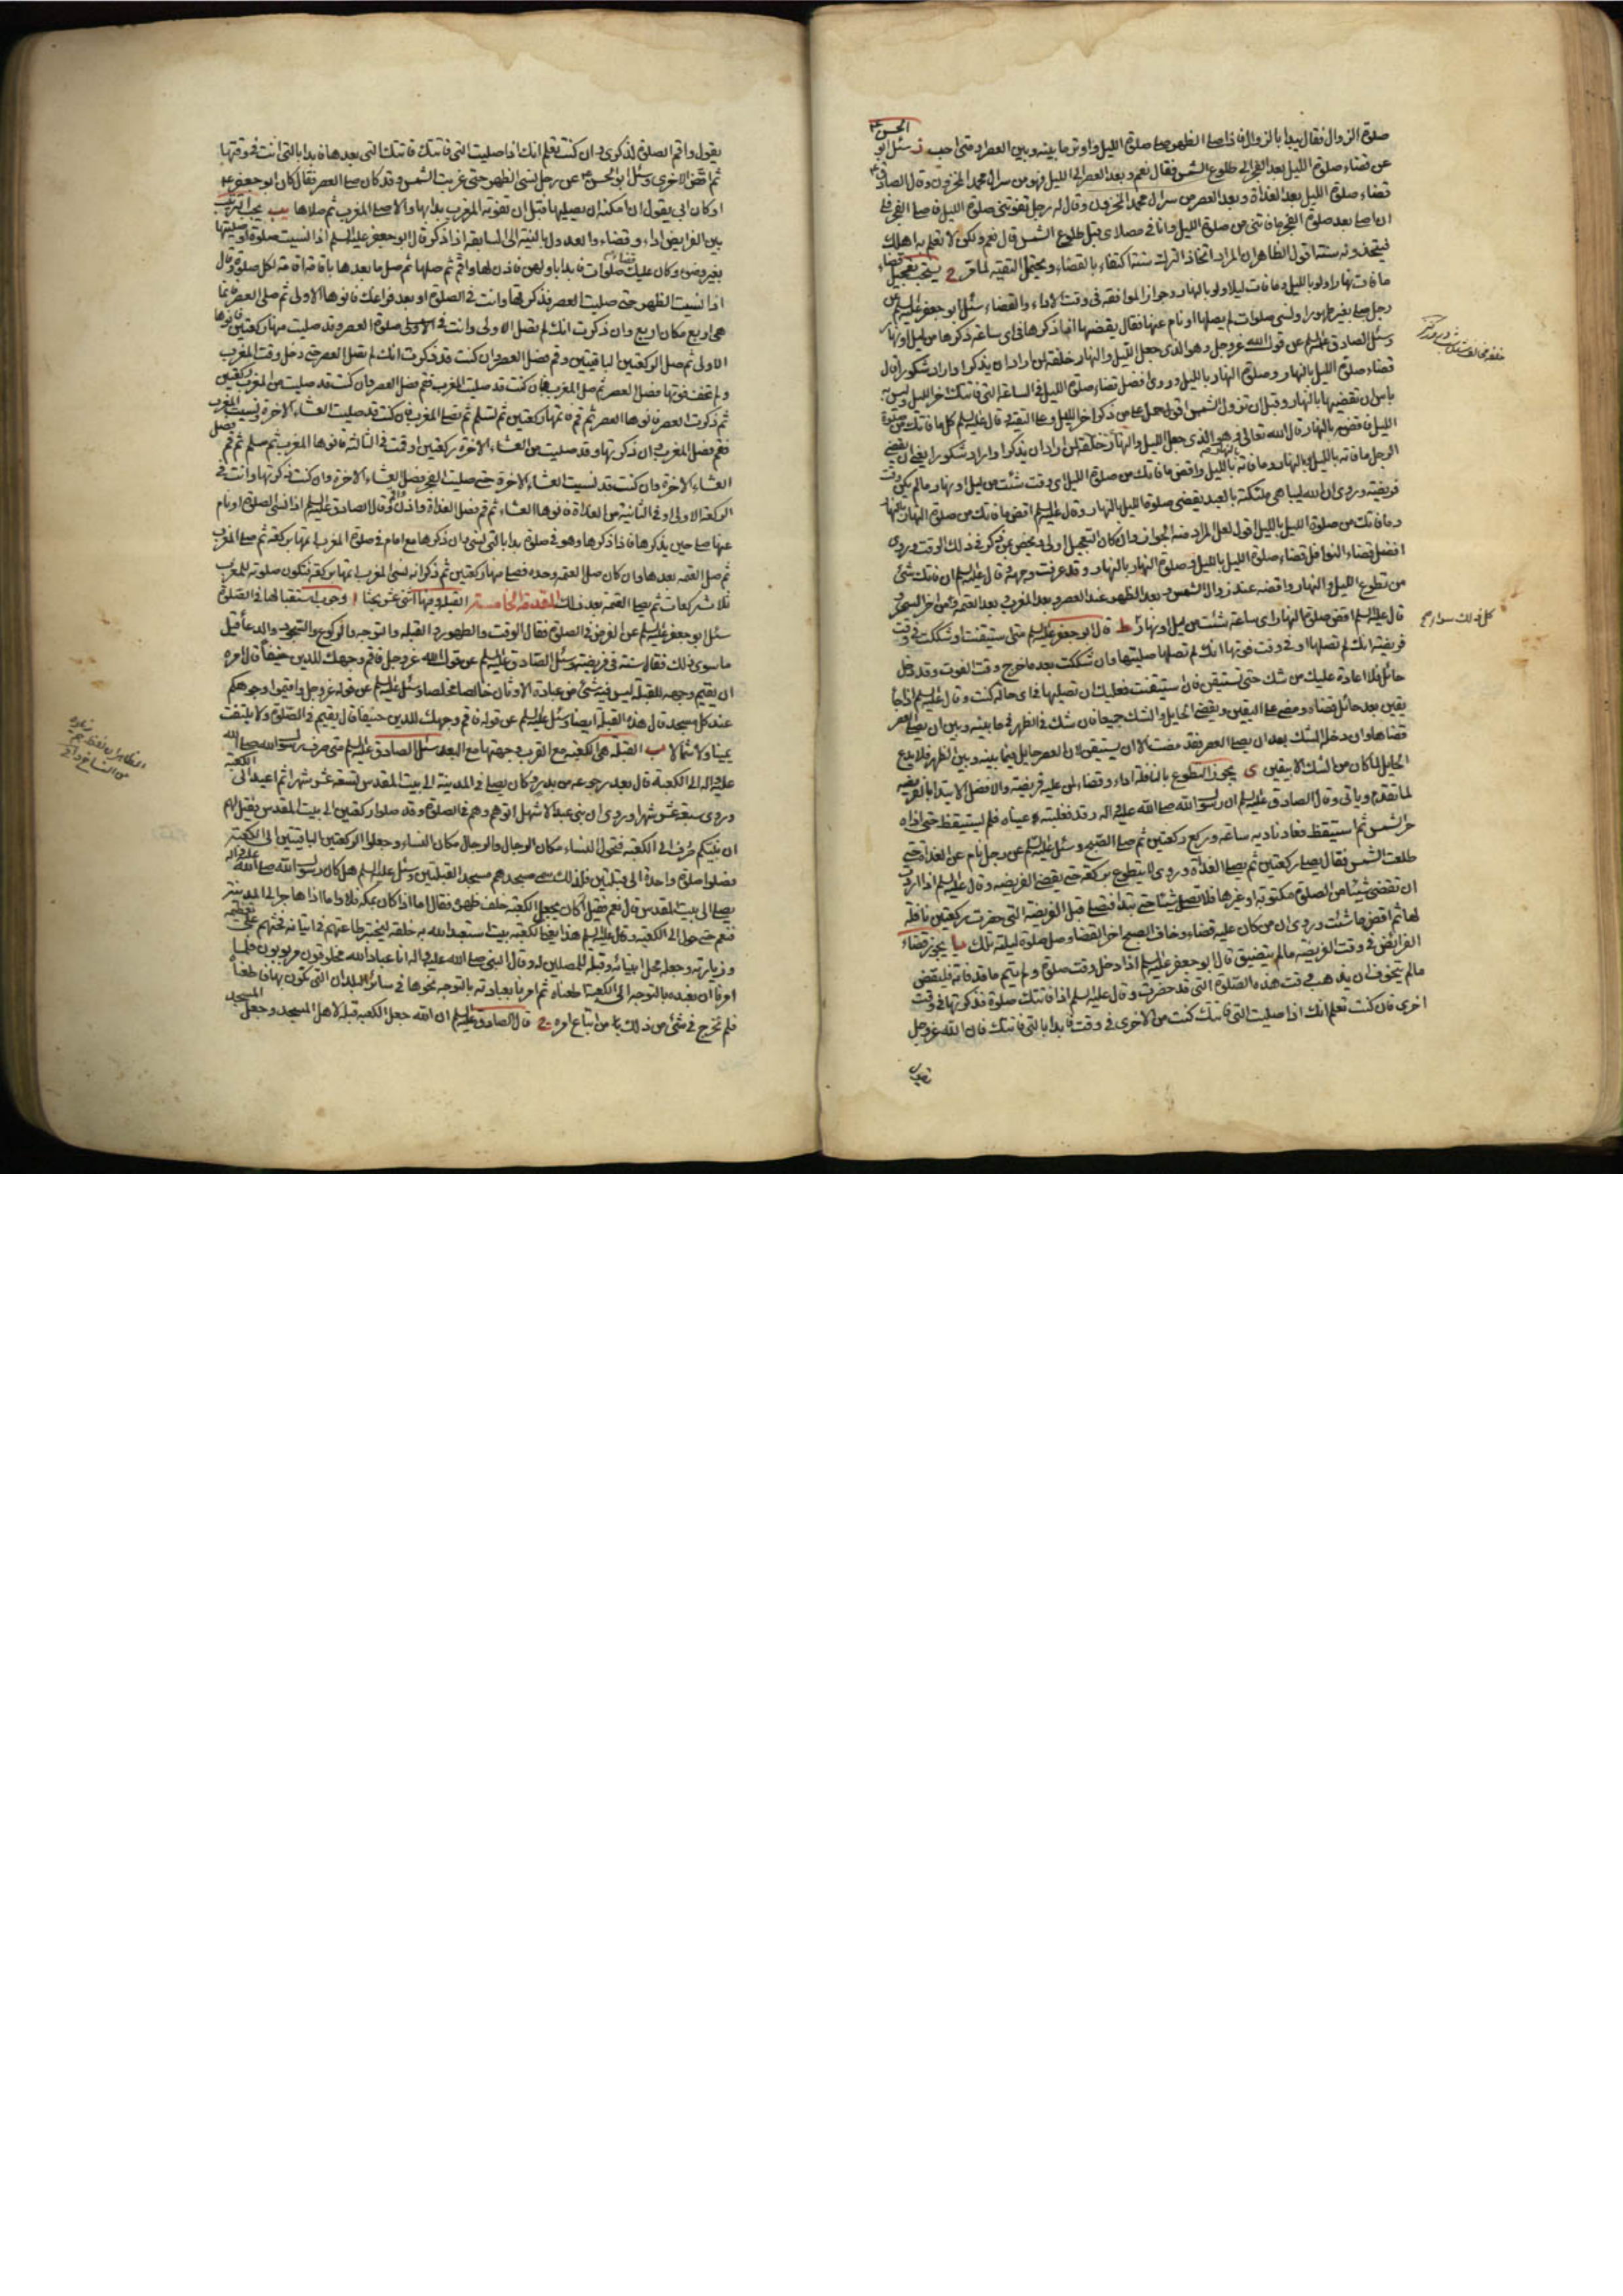 صلوة الزوال فقال يبدا بالزوال فاذا صلى الظهر صلى صلوة الليل واوتر ما بينه وبين العصر او متى احب سئل ابو الحسن ع
عن قضاء صلوة الليل بعد الفجر الى طلوع الشمس فقال نعم وبعد العصر الى الليل فهو من سر ال محمد المخزون وقال الصادق ع
قضاء صلوة الليل بعد الغداة وبعد العصر من سر ال محمد المخزون وقال له رجل تفوتنى صلوة الليل فاصلى الفجر فلى
ان اصلى بعد صلوة الفجر ما فاتنى من صلوة الليل وانا فى مصلاى قبل طلوع الشمس قال نعم ولكن لا تعلم به اهلك
فيتخذونه سنة اقول الظاهر ان المراد اتخاذ الترك سنة اكتفاء بالقضاء ويحتمل التقية لما مر ح يستحب تعجيل قضاء
ما فات نهارا ولو بالليل وما فات ليلا ولو بالنهار وجواز الموافقة فى وقت الاداء والقضاء سئل ابو جعفر عليه السلم عن
رجل صلى بغير طهور او نسى صلوات لم يصلها او نام عنها فقال يقضيها اذا ذكرها فى اى ساعة ذكرها من ليل او نهار
وسئل الصادق عليه السلم عن قول الله عز وجل وهو الذى جعل الليل والنهار خلفة لمن اراد ان يذكر او اراد شكورا قال
قضاء صلوة الليل بالنهار وصلوة النهار بالليل وروى افضل قضاء صلوة الليل فى الساعة التى فاتتك اخر الليل وليس به
باس ان تقضيها بالنهار وقبل ان تزول الشمس اقول حمل على من ذكر اخر الليل وعلى التقية وقال عليه السلم كل ما فاتك من صلوة
الليل فاقضه بالنهار قال الله تعالى وهو الذى جعل الليل والنهار خلفة لمن اراد ان يذكر او اراد شكورا يعنى ان يقضى
الرجل ما فاته بالليل بالنهار وما فاته بالنهار بالليل واقض ما فاتك من صلوة الليل اى وقت شئت من ليل او نهار ما لم يكن وقت
فريضة وروى ان الله ليباهى ملئكته بالعبد يقضى صلوة الليل بالنهار وقال عليه السلم اقض ما فاتك من صلوة النهار بالنهار
وما فاتك من صلوة الليل بالليل اقول لعل المراد منه الجواز وان كان التعجيل اولى ويخص بمن ذكر فى ذلك الوقت وروى
افضل قضاء النوافل قضاء صلوة الليل بالليل وصلوة النهار بالنهار وقد عرفت وجهه وقال عليه السلم ان فاتك شئ
من تطوع الليل والنهار فاقضه عند زوال الشمس وبعد الظهر عند العصر وبعد المغرب وبعد العتمة ومن اخر السحر و
قال عليه السلم اقض صلوة النهار اى ساعة شئت من ليل او نهار ط قال ابو جعفر عليه السلم متى استيقنت او شككت فى وقت
فريضة انك لم تصلها او فى وقت فوتها انك لم تصلها صليتها وان شككت بعد ما خرج وقت الفوت وقد دخل
حائل فلا اعادة عليك من شك حتى تستيقن فان استيقنت فعليك ان تصليها فى اى حالة كنت وقال عليه السلم اذا جاء
يقين بعد حائل قضاه ومضى على اليقين ويقضى الحايل والشك جميعا فان شك فى الظهر فيما بينه وبين ان يصلى العصر
قضاها وان دخله الشك بعد ان يصلى العصر فقد مضت الا ان يستيقن لان العصر حايل فيما بينه وبين الظهر فلا يدع
الحايل لما كان من الشك الا بيقين ى يجوز التطوع بالنافلة اداء وقضاء لمن عليه فريضة والافضل الابتداء بالفريضة
لما تقدم وياتى وقال الصادق عليه السلم ان رسول الله صلى الله عليه واله رقد فغلبته عيناه فلم يستيقظ حتى اذاه
حر الشمس ثم استيقظ فعاد ناديه ساعة وركع ركعتين ثم صلى الصبح وسئل عليه السلم عن رجل نام عن الغداة حتى
طلعت الشمس فقال يصلى ركعتين ثم يصلى الغداة وروى لا يتطوع بركعة حتى يقضى الفريضة وقال عليه السلم اذا اردت
ان تقضى شيئا من الصلوة مكتوبة او غيرها فلا تصل شيئا حتى تبدا فتصلى قبل الفريضة التى حضرت ركعتين نافلة
لها ثم اقض ما شئت وروى ان من كان عليه قضاء وخاف الصبح اخر القضاء وصل صلوة ليلته تلك يا يجوز قضاء
الفرائض فى وقت الفريضة ما لم يتضيق قال ابو جعفر عليه السلم اذا دخل وقت صلوة ولم يتم ما قد فاته فليقض
ما لم يتخوف ان يذهب وقت هذه الصلوة التى قد حضرت وقال عليه السلم اذا فاتتك صلوة فذكرتها فى وقت
اخرى فان كنت تعلم انك اذا صليت التى فاتتك كنت من الاخرى فى وقت فابدا بالتى فاتتك فان الله عز وجل
يقول
يقول واقم الصلوة لذكرى وان كنت تعلم انك اذا صليت التى فاتتك فاتتك التى بعدها فابدا بالتى انت فى وقتها
ثم اقض الاخرى وسئل ابو الحسن ع عن رجل نسى الظهر حتى غربت الشمس وقد كان صلى العصر فقال كان ابو جعفر ع
او كان ابى يقول ان امكنه ان يصليها قبل ان تفوته المغرب بدا بها والا صلى المغرب ثم صلاها يب يجب الترتيب
بين الفرايض اداء وقضاء والعدول بالنية الى السابقة اذا ذكر قال ابو جعفر عليه السلم اذا نسيت صلوة او صليتها
بغير وضوء وكان عليك قضاء صلوات فابدا باولهن فاذن لها واقم ثم صلها ثم صل ما بعدها باقامة اقامة لكل صلوة وقال
اذا نسيت الظهر حتى صليت العصر فذكرتها وانت فى الصلوة او بعد فراغك فانوها الاولى ثم صلى العصر فانما
هى اربع مكان اربع وان ذكرت انك لم تصل الاولى وانت فى صلوة العصر وقد صليت منها ركعتين فانوها
الاولى ثم صل الركعتين الباقيتين وقم فصل العصر وان كنت قد ذكرت انك لم تصل العصر حتى دخل وقت المغرب
ولم تخف فوتها فصل العصر ثم صل المغرب فان كنت قد صليت المغرب فقم فصل العصر وان كنت قد صليت من المغرب ركعتين
ثم ذكرت العصر فانوها العصر ثم قم فاتمها ركعتين ثم تسلم ثم تصلى المغرب فان كنت قد صليت العشاء الاخرة ونسيت المغرب
فقم فصل المغرب وان ذكرتها وقد صليت من العشاء الاخرة ركعتين او قمت فى الثالثة فانوها المغرب ثم سلم ثم قم فصل
العشاء الاخرة وان كنت قد نسيت العشاء الاخرة حتى صليت الفجر فصل العشاء الاخرة وان كنت ذكرتها وانت فى
الركعة الاولى او فى الثانية من الغداة فانوها العشاء ثم قم فصل الغداة واذن واقم وقال الصادق عليه السلم اذا نسى الصلوة او نام
عنها صلى حين يذكرها فاذا ذكرها وهو فى صلوة بدا بالتى نسى وان ذكرها مع امام فى صلوة المغرب اتمها بركعة ثم صلى المغرب
ثم صل العتمة بعدها وان كان صلى العتمة وحده فصلى منها ركعتين ثم ذكر انه نسى المغرب اتمها بركعة فتكون صلوته للمغرب
ثلاث ركعات ثم يصلى العتمة بعد ذلك المقدمة الخامسة القبلة وفيها اثنى عشر بحثا ا وجوب استقبالها فى الصلوة
سئل ابو جعفر عليه السلم عن الفرض فى الصلوة فقال الوقت والطهور والقبلة والتوجه والركوع والسجود والدعاء قيل
ما سوى ذلك فقال سنة فى فريضة وسئل الصادق عليه السلم عن قول الله عز وجل فاقم وجهك للدين حنيفا قال امره
ان يقيم وجهه للقبلة ليس فيه شئ من عبادة الاوثان خالصا مخلصا وسئل عليه السلم عن قوله عز وجل واقيموا وجوهكم
عند كل مسجد قال هذه القبلة ايضا وسئل عليه السلم عن قوله فاقم وجهك للدين حنيفا قال يقيم فى الصلوة ولا يلتفت
يمينا ولا شمالا ب القبلة هى الكعبة مع القرب وجهتها مع البعد سئل الصادق عليه السلم متى صرف رسول الله صلى الله
عليه واله الى الكعبة قال بعد رجوعه من بدر وكان يصلى فى المدينة الى بيت المقدس تسعة عشر شهرا ثم اعيد الى الكعبة
وروى سبعة عشر شهرا وروى ان بنى عبد الاشهل اتوهم وهم فى الصلوة وقد صلوا ركعتين الى بيت المقدس فقيل لهم
ان نبيكم صرف الى الكعبة فتحول النساء مكان الرجال والرجال مكان النساء وجعلوا الركعتين الباقيتين الى الكعبة
فصلوا صلوة واحدة الى قبلتين فلذلك سمى مسجدهم مسجد القبلتين وسئل عليه السلم هل كان رسول الله صلى الله عليه واله
يصلى الى بيت المقدس قال نعم فقيل اكان يجعل الكعبة خلف ظهره فقال اما اذا كان بمكة فلا واما اذا هاجر الى المدينة
فنعم حتى حول الى الكعبة وقال عليه السلم هذا يعنى الكعبة بيت استعبد الله به خلقه ليختبر طاعتهم فى اتيانه فحثهم على تعظيمه
وزيارته وجعله محل انبيائه وقبلة للمصلين له وقال النبى صلى الله عليه واله انا عباد الله مخلوقون مربوبون فلما
امرنا ان نعبده بالتوجه الى الكعبة اطعناه ثم امرنا بعبادته بالتوجه نحوها فى سائر البلدان التى تكون بها فاطعناه
فلم نخرج فى شئ من ذلك من اتباع امره ج قال الصادق عليه السلم ان الله جعل الكعبة قبلة لاهل المسجد وجعل المسجد